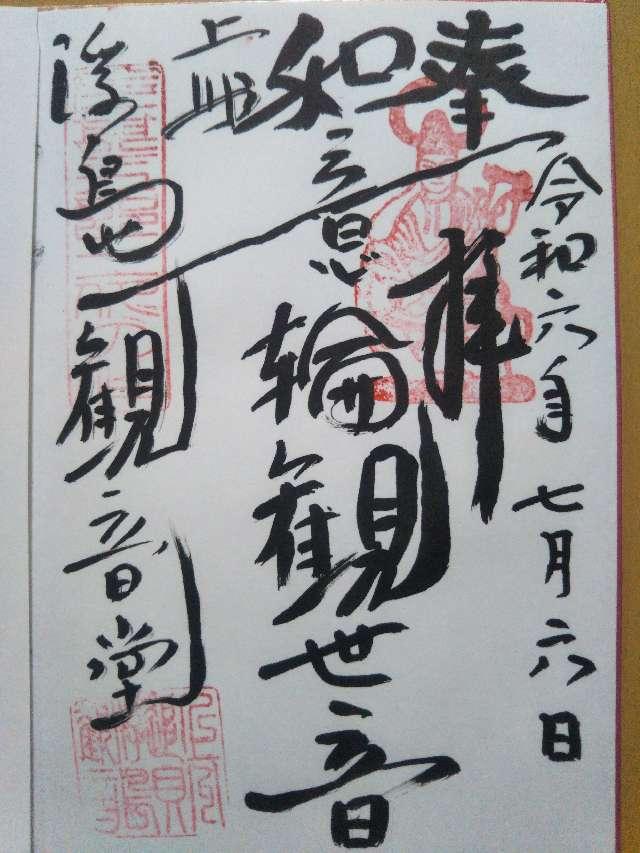 奉拝
令和六年七月六日
如意輪観世音
上州
浮島観音堂